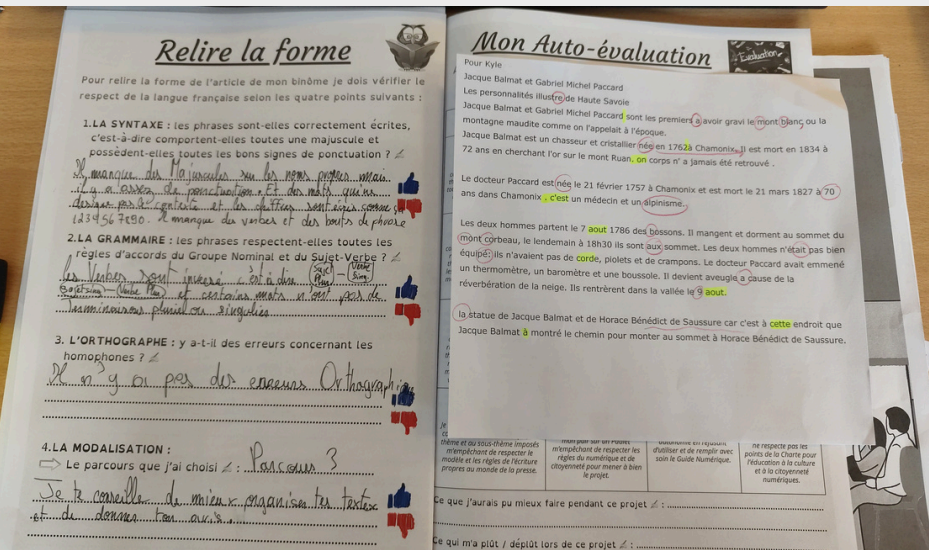 Relire la forme
Pour relire la forme de l'article de mon binôme je dois vérifier le
respect de la langue française selon les quatre points suivants :
1.LA SYNTAXE : les phrases sont-elles correctement écrites,
c'est-à-dire comportent-elles toutes une majuscule et
possèdent-elles toutes les bons signes de ponctuation ?
Il manque des Majuscules sur les noms propres mais
il y a assez de ponctuation. Et des mots qui ne
designe pas le contexte et les chiffres sont écris comme ça
1234567890. Il manque des verbes et des bouts de phrase
2.LA GRAMMAIRE : les phrases respectent-elles toutes les
règles d'accords du Groupe Nominal et du Sujet-Verbe ?
les Verbes sont inversé c'est à dire Sujet Plu - Verbe Sing
Sujet sing - Verbe Plu et certains mots n'ont pas de
pluriel ou singulier
3. L'ORTHOGRAPHE : y a-t-il des erreurs concernant les
homophones ?
Il n'y a pas des erreurs Orthographique
4.LA MODALISATION :
Le parcours que j'ai choisi : Parcours 3
Je te conseille de mieux organiser tes textes
et de donner ton avis.
Mon Auto-évaluation
Evaluation
Pour Kyle
Jacque Balmat et Gabriel Michel Paccard
Les personnalités illustre de Haute Savoie
Jacque Balmat et Gabriel Michel Paccard sont les premiers a avoir gravi le mont blanc ou la
montagne maudite comme on l'appelait à l'époque.
Jacque Balmat est un chasseur et cristallier née en 1762à Chamonix. Il est mort en 1834 à
72 ans en cherchant l'or sur le mont Ruan. on corps n' a jamais été retrouvé .
Le docteur Paccard est née le 21 février 1757 à Chamonix et est mort le 21 mars 1827 à 70
ans dans Chamonix . c'est un médecin et un alpinisme.
Les deux hommes partent le 7 aout 1786 des bossons. Il mangent et dorment au sommet du
mont corbeau, le lendemain à 18h30 ils sont aux sommet. Les deux hommes n'était pas bien
équipé: ils n'avaient pas de corde, piolets et de crampons. Le docteur Paccard avait emmené
un thermomètre, un baromètre et une boussole. Il devient aveugle a cause de la
réverbération de la neige. Ils rentrèrent dans la vallée le 9 aout.
la statue de Jacque Balmat et de Horace Bénédict de Saussure car c'est à cette endroit que
Jacque Balmat à montré le chemin pour monter au sommet à Horace Bénédict de Saussure.
thème et au sous-thème imposés
m'empêchant de respecter le
modèle et les règles de l'écriture
propres au monde de la presse.
m'empêchant de respecter les
règles du numérique et de
citoyenneté pour mener à bien
le projet.
d'utiliser et de remplir avec
soin le Guide Numérique.
ne respecte pas les
points de la Charte pour
l'éducation à la culture
et à la citoyenneté
numériques.
Ce que j'aurais pu mieux faire pendant ce projet :
Ce qui m'a plût / déplût lors de ce projet :